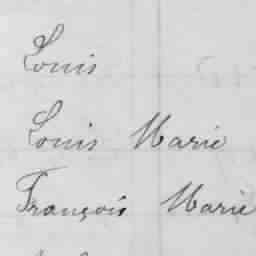 Louis
Louis Marie
François Marie